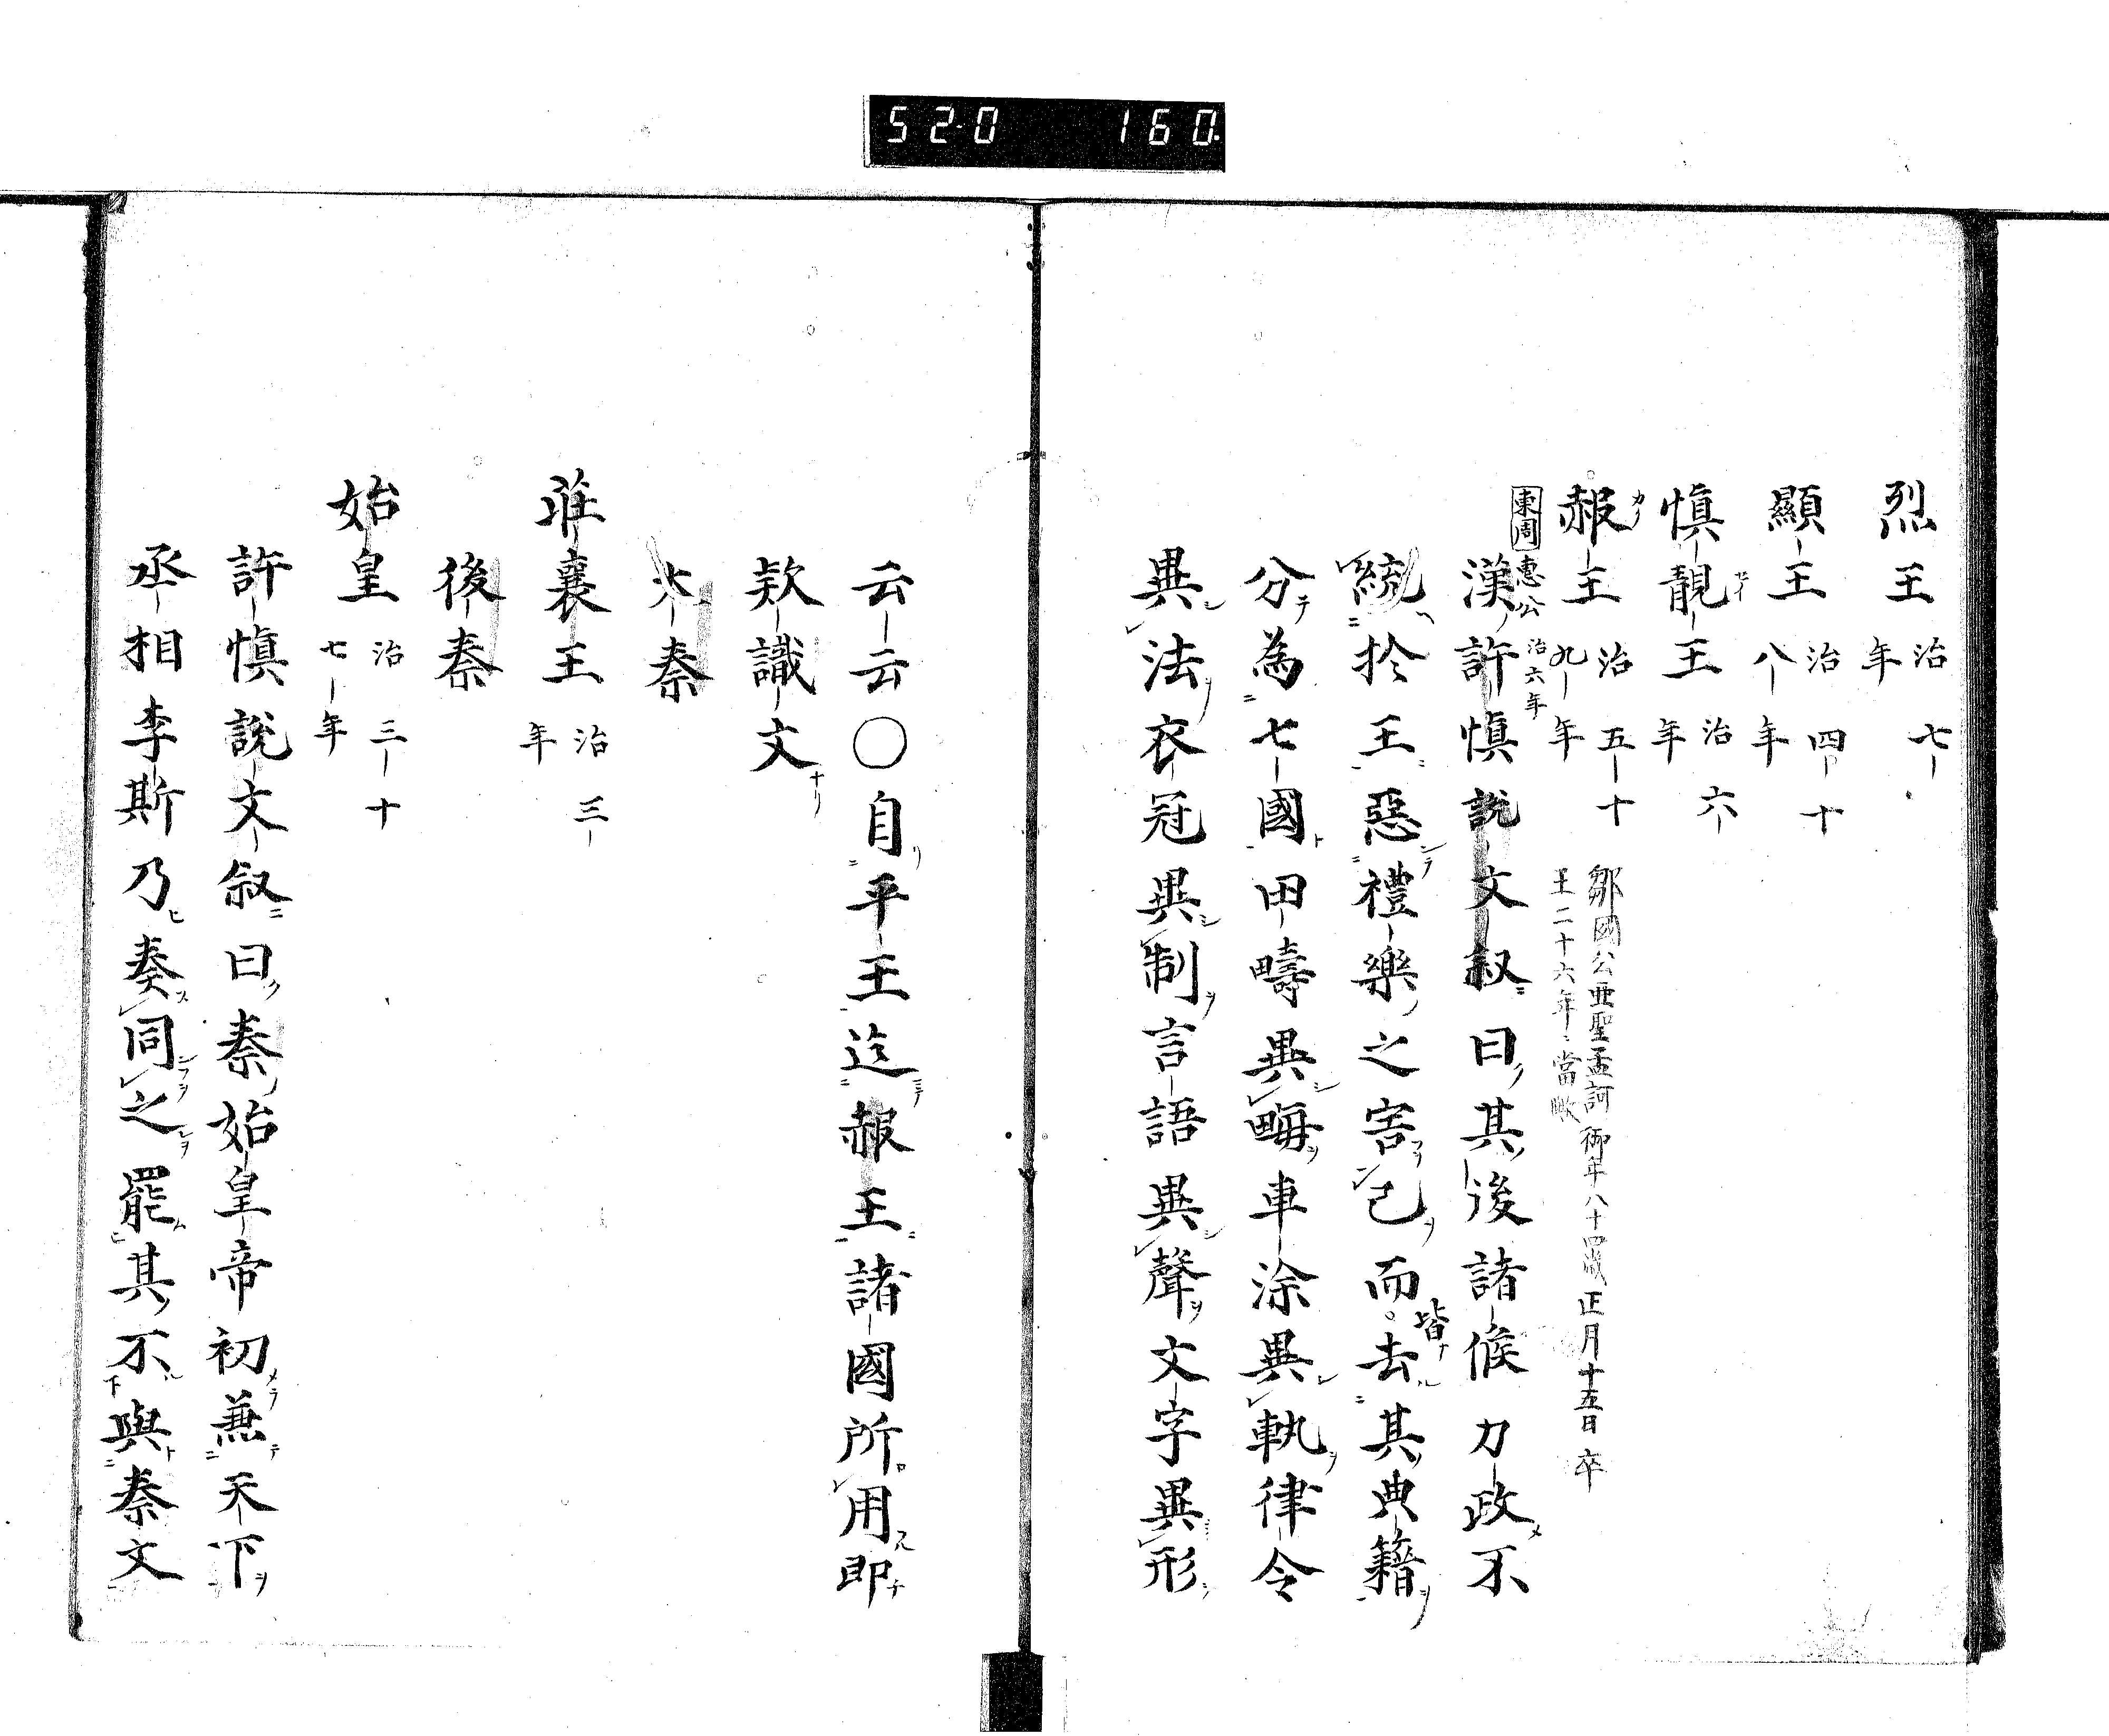 520 160
烈王 治七年
顯王 治四十八年
慎靚王 治六年
赧王 治五十九年
鄒國公亜聖孟軻御年八十四歳正月十五日卒
王二十六年ニ當歟
東周惠公 治六年
漢許慎說文叙曰其後諸侯力政不
統於王惡禮樂之害己而皆去其典籍
分為七國田疇異畮車涂異軌律令
異法衣冠異制言語異聲文字異形
云云〇自平王迄赧王諸國所用即
欵識文
大秦
莊襄王 治三年
後秦
始皇 治三十七年
許慎說文叙曰秦始皇帝初兼天下
丞相李斯乃奏同之罷其不與秦文